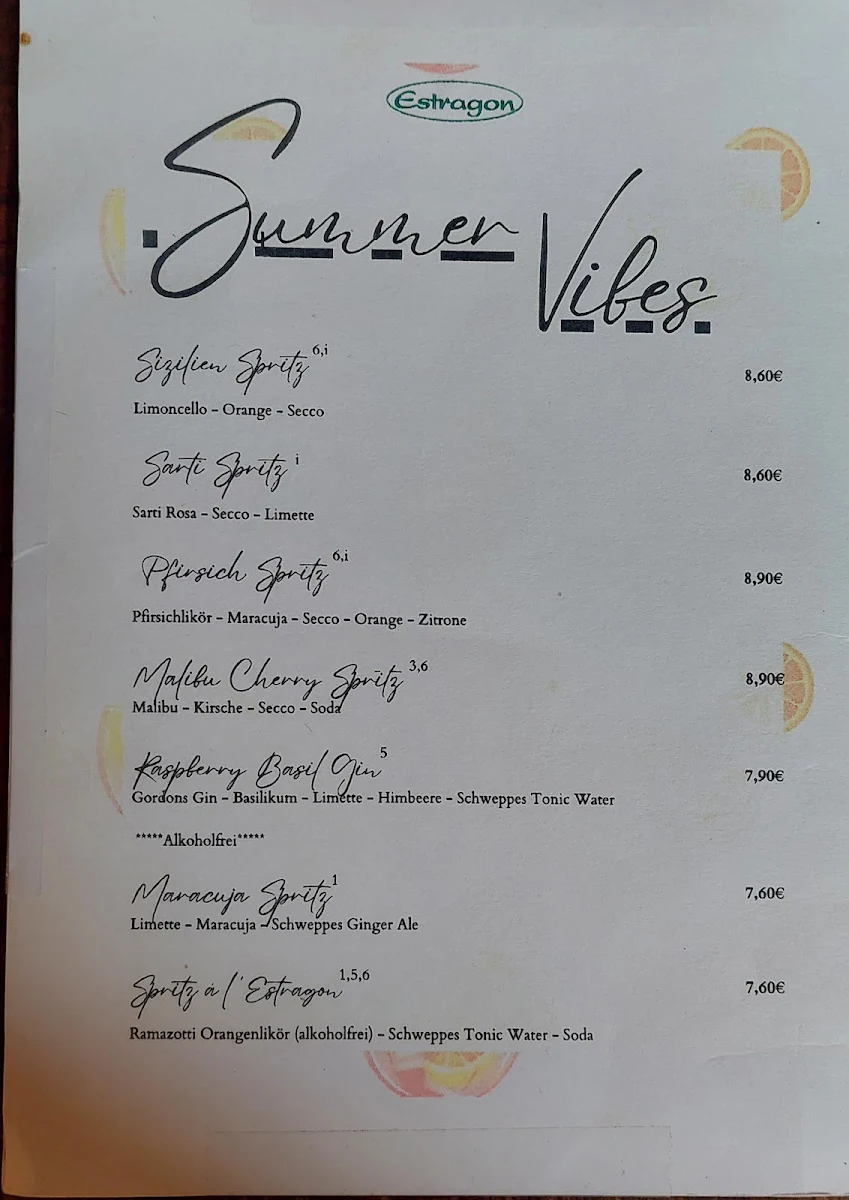 Estragon
Summer
Vibes
Sizilien Spritz 6,i
8,60€
Limoncello - Orange - Secco
Sarti Spritz i
8,60€
Sarti Rosa - Secco - Limette
Pfirsich Spritz 6,i
8,90€
Pfirsichlikör - Maracuja - Secco - Orange - Zitrone
Malibu Cherry Spritz 3,6
8,90€
Malibu - Kirsche - Secco - Soda
Raspberry Basil Gin 5
7,90€
Gordons Gin - Basilikum - Limette - Himbeere - Schweppes Tonic Water
*****Alkoholfrei*****
Maracuja Spritz 1
7,60€
Limette - Maracuja - Schweppes Ginger Ale
Spritz á l' Estragon 1,5,6
7,60€
Ramazotti Orangenlikör (alkoholfrei) - Schweppes Tonic Water - Soda